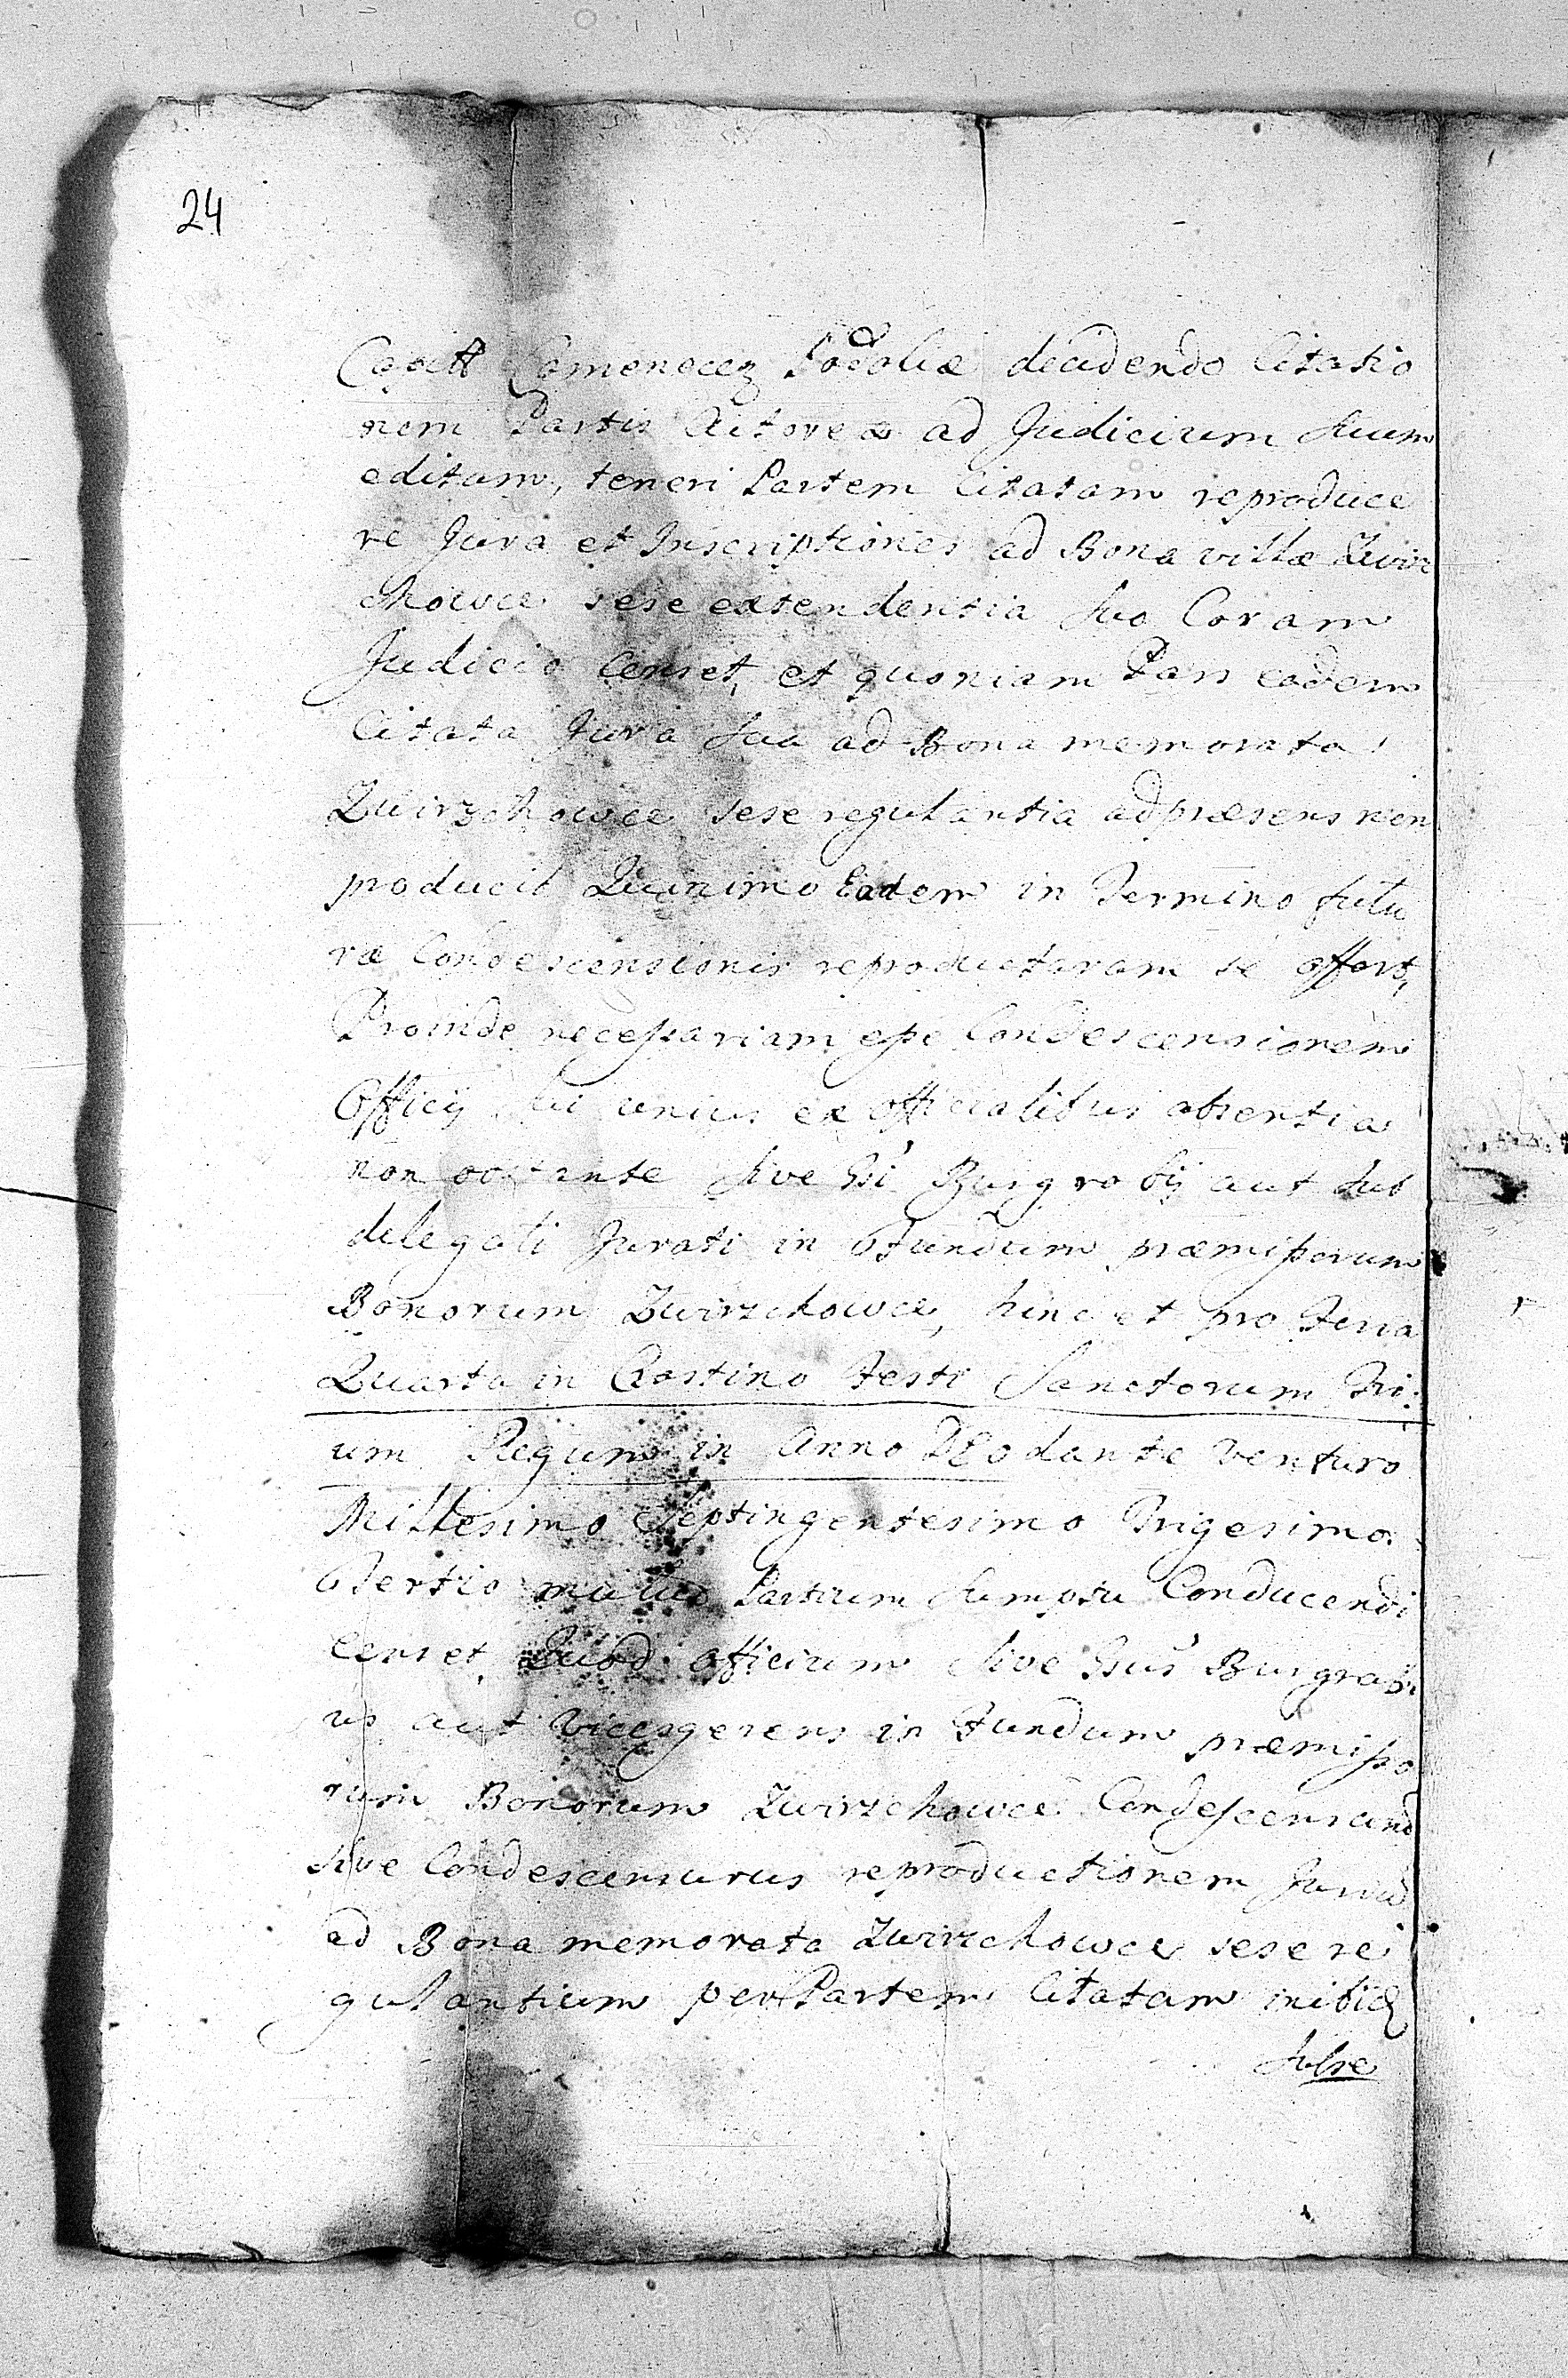 24
Capitt Camenecez Podoliæ decidendo Citatio
nem Partis Actoreæ ad Judicium Suum
editam, teneri Partem Citatam reproduce
re Jura et Inscriptiones ad Bona villæ Zwirz
chowce sese extendentia Suo Coram
Judicio Censet, et quoniam Pars eadem
Citata Jura Sua ad Bona memorata
Zwirzchowce sese regulantia ad præsens non
producit Quinimo Eadem in Termino futu
ræ Condescensionis reproducturam se offert,
Proinde necessariam esse Condescensionem
Officij Sui unius ex Officialibus absentia
non obstante Sive Gsi Burgrabij aut Sub
delegati Jurati in Fundum præmissorum
Bonorum Zwirzchowce, hinc et pro Feria
Quarta in Crastino Festi Sanctorum Tri
um Regum in Anno DEo dante venturo
Millesimo Septingentesimo Trigesimo
Tertio mutuo Partium Sumptu Conducendi
Censet, Quod Officium Sive Gsus Burgrabi
us aut Vicesgerens in Fundum præmisso
rum Bonorum Zwirzchowce Condescensum
Sive Condescensurus reproductionem Jurium
ad Bona memorata Zwirzchowce sese re
gulantium per Partem Citatam inibiq